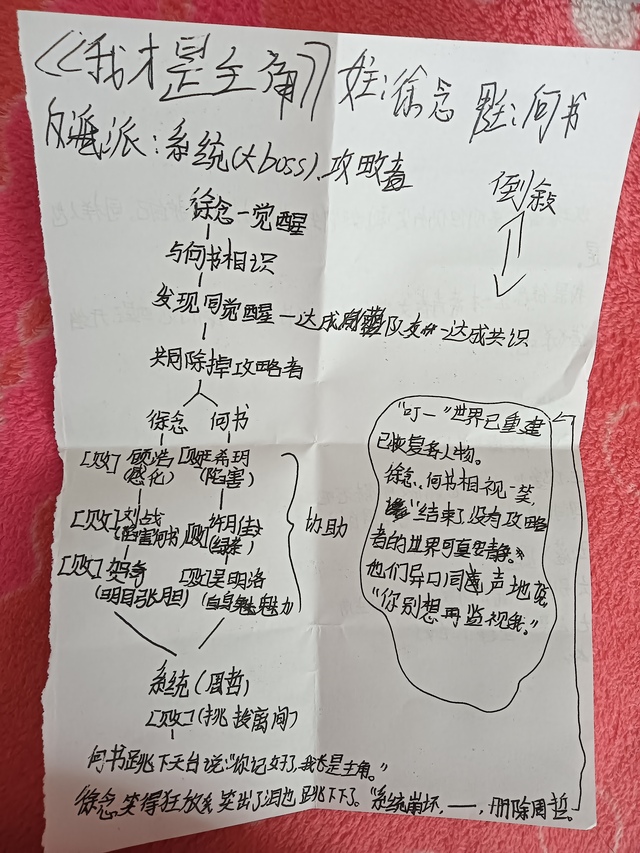 《我才是主角》女主:徐念 男主:何书
反派:系统(大boss)、攻略者
倒叙
徐念一觉醒
与何书相识
发现同觉醒—达成队友—达成共识
共同除掉攻略者
徐念 何书
[败]顾浩 [败]希玥
(感化) (陷害)
[败]刘战 [败]许月佳
(陷害何书) (绿茶)
[败]贺奇 [败]吴明洛
(明目张胆) (自身魅力)
协助
系统(周哲)
[败](挑拨离间)
何书跳下天台说:"你记好了,我才是主角。"
徐念笑得狂放,笑出了泪也跳下了。"系统崩坏,——,删除周哲。
"叮—"世界已重建
已恢复各人物。
徐念、何书相视一笑,
"结束了,没有攻略
者的世界可真安静。"
他们异口同声地说
"你别想再监视我。"